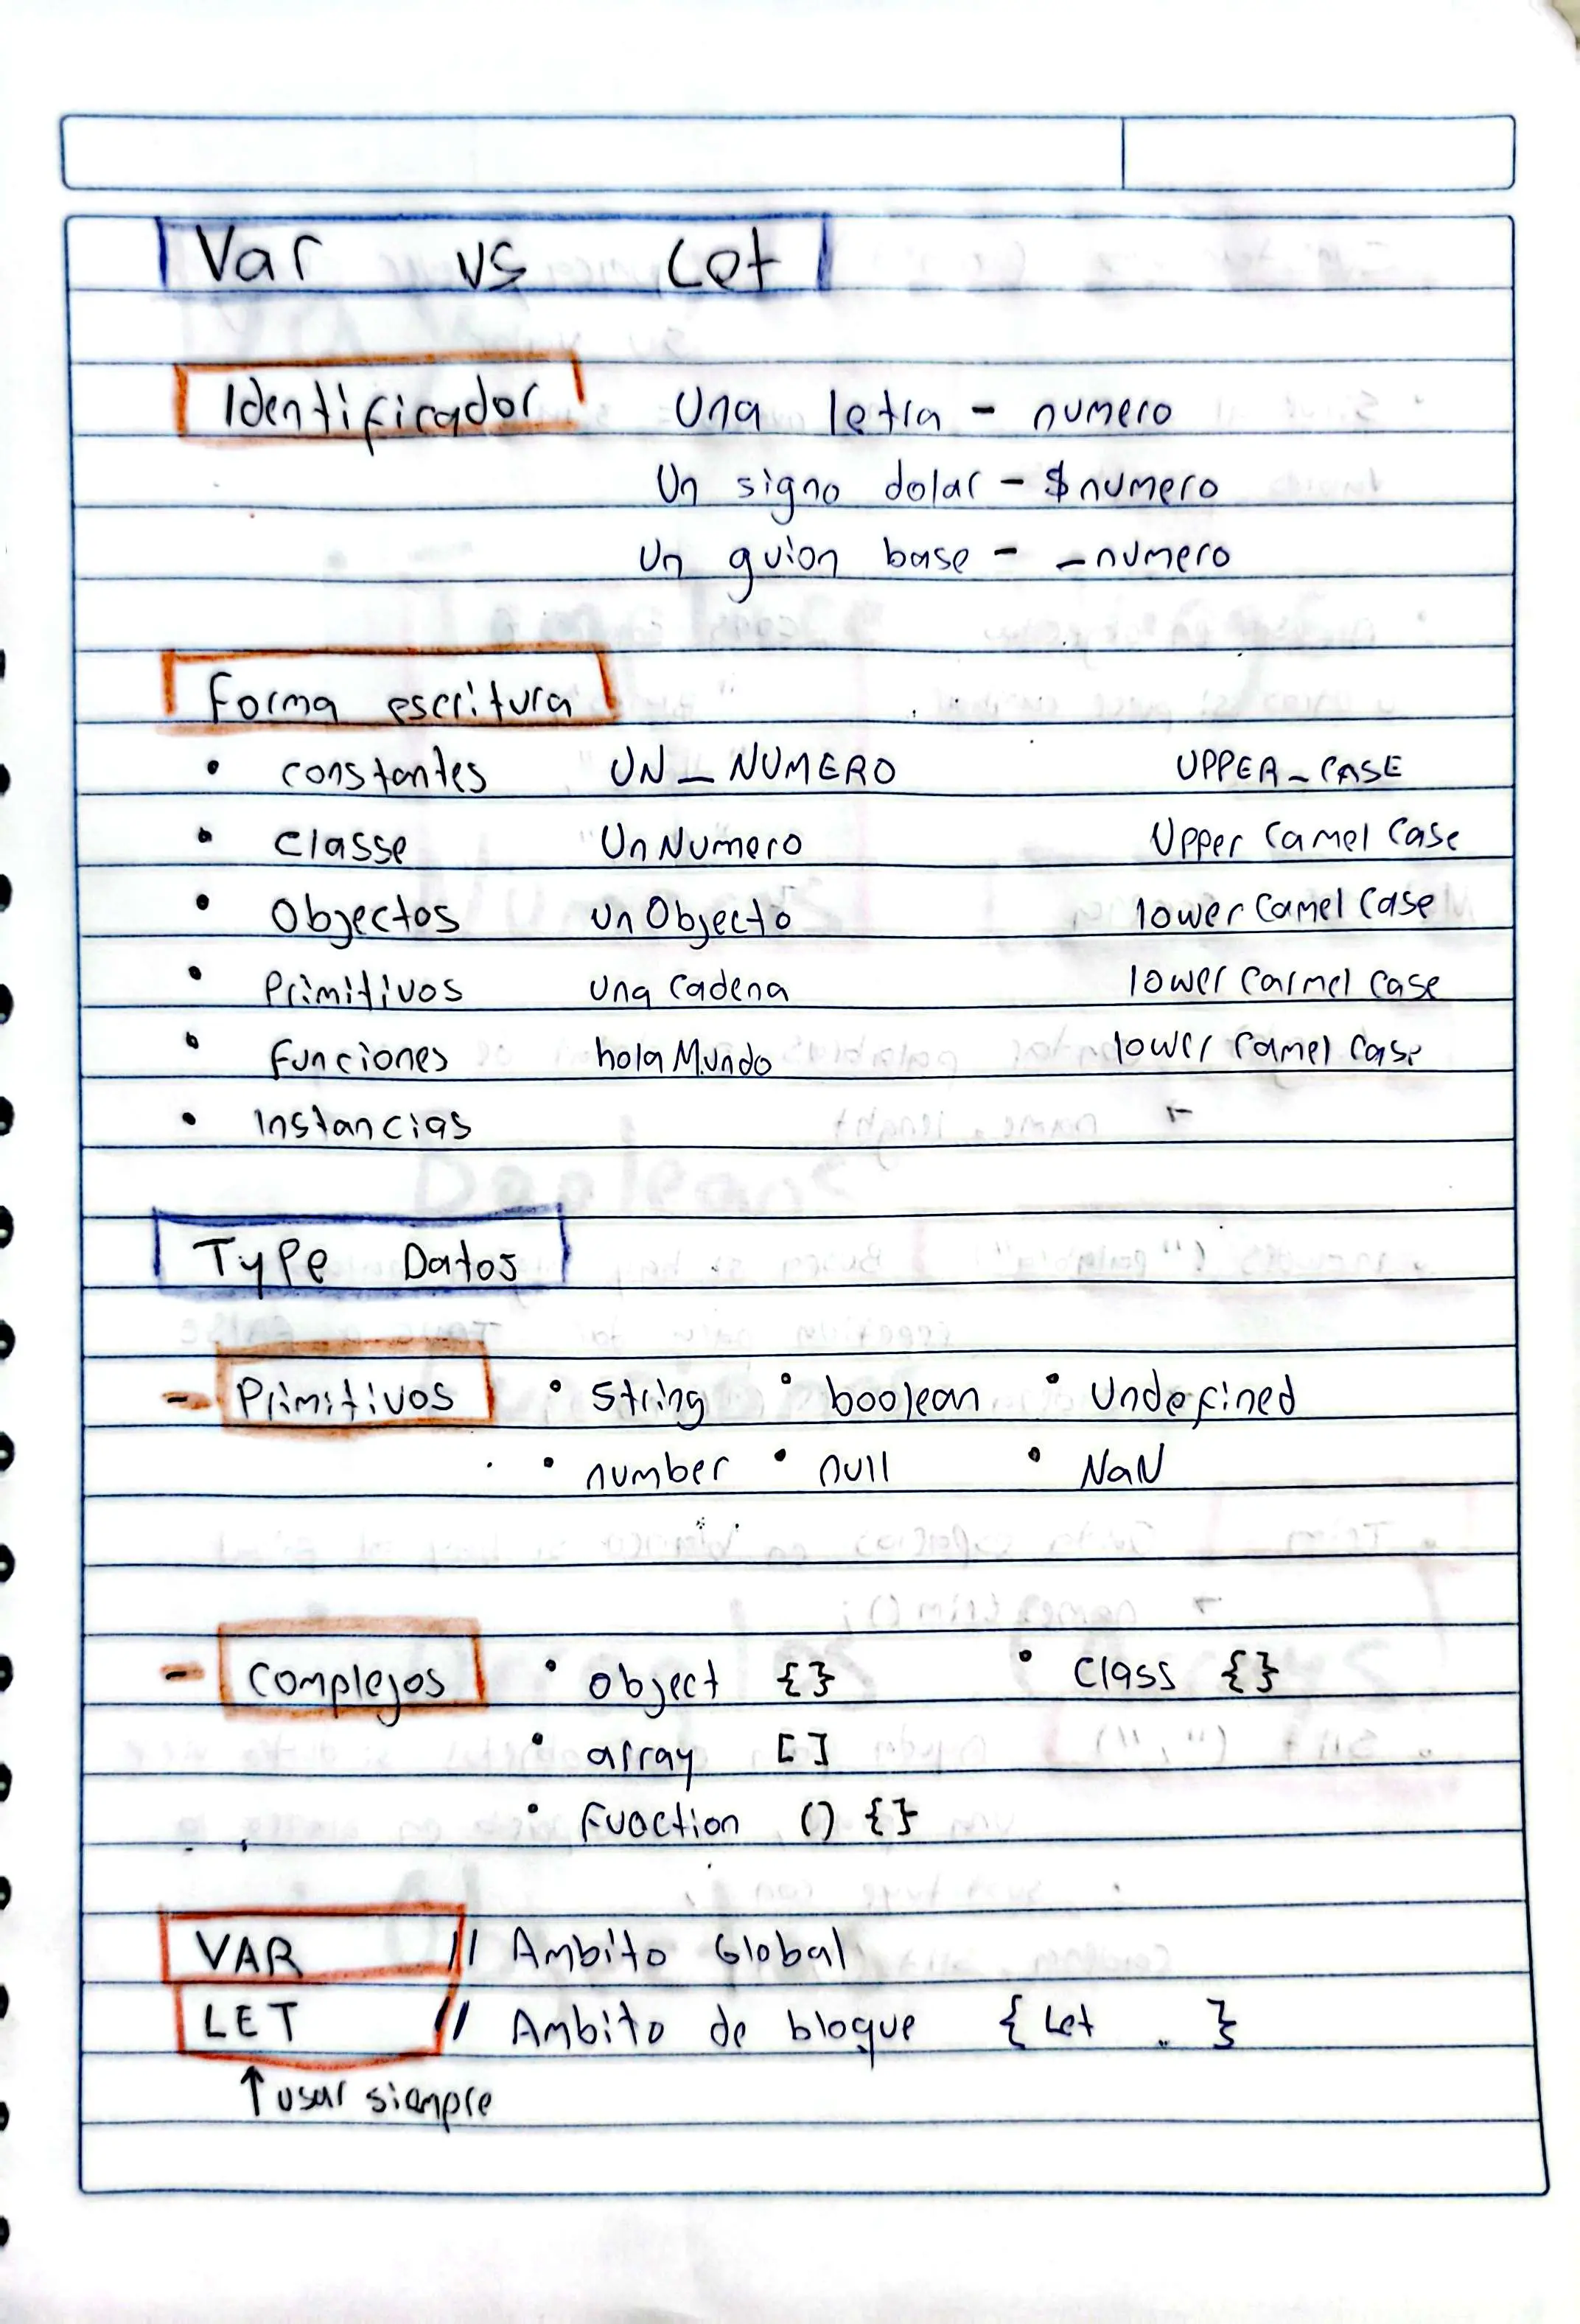 Var vs Let
Identificador Una letra - numero
Un signo dolar - $numero
Un guion base - _numero
Forma escritura
• constantes UN_NUMERO UPPER_CASE
• classe UnNumero Upper Camel Case
• Objectos unObjecto lower Camel Case
• Primitivos una Cadena lower Carmel Case
• Funciones hola Mundo lower Camel Case
• Instancias
Type Datos
- Primitivos • String • boolean • Undefined
• number • null • NaN
- Complejos • object {} • Class {}
• array []
• Fuoction () {}
VAR // Ambito Global
LET // Ambito de bloque { Let . }
↑ usar siempre